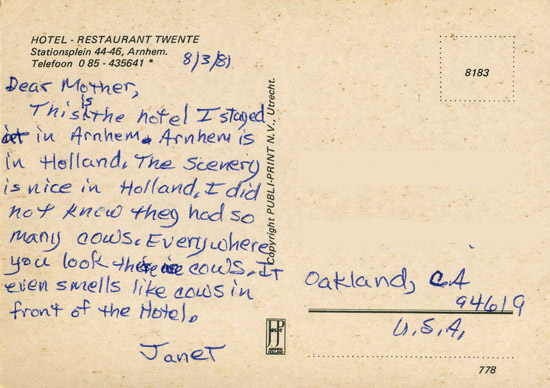 HOTEL - RESTAURANT TWENTE
Stationsplein 44-46, Arnhem.
Telefoon 0 85 - 435641 *
8/3/81
Dear Mother,
This is the hotel I stayed
in Arnhem. Arnhem is
in Holland. The scenery
is nice in Holland. I did
not know they had so
many cows. Everywhere
you look there is cows. It
even smells like cows in
front of the Hotel.
Janet
Copyright PUBLI-PRINT N.V., Utrecht.
8183
Oakland, CA
94619
U.S.A.
778